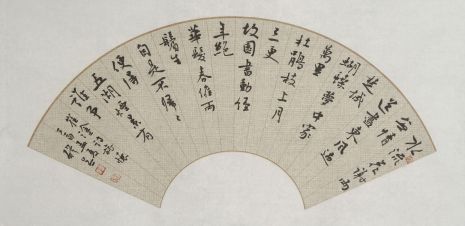 水流花謝兩
無情
送盡東風過
楚城
蝴蝶夢中家
萬里
杜鵑枝上月
三更
故園書動經
年絕
華髮春催兩
鬢生
自是不歸歸
便得
五湖煙景有
誰爭
崔塗